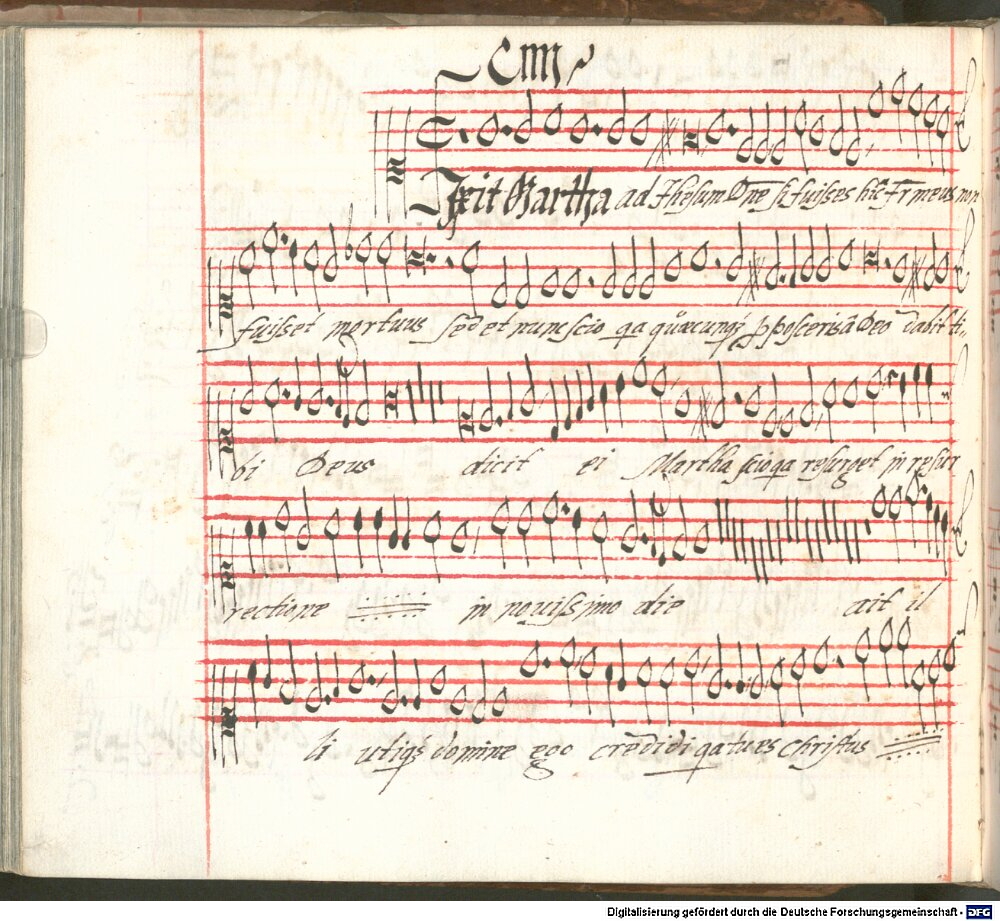 Dixit Martha ad Jhesum Dn̄e si fuisses hic fr meus non
fuisset mortuus sed et nunc scio qa quæcunq; poposceris â Deo dabit ti,,
bi Deus dicit ei Martha scio qa resurget in resur
rectione in novissimo die ait il
li utiq; domine ego credidi qa tu es Christus
Digitalisierung gefördert durch die Deutsche Forschungsgemeinschaft - DFG